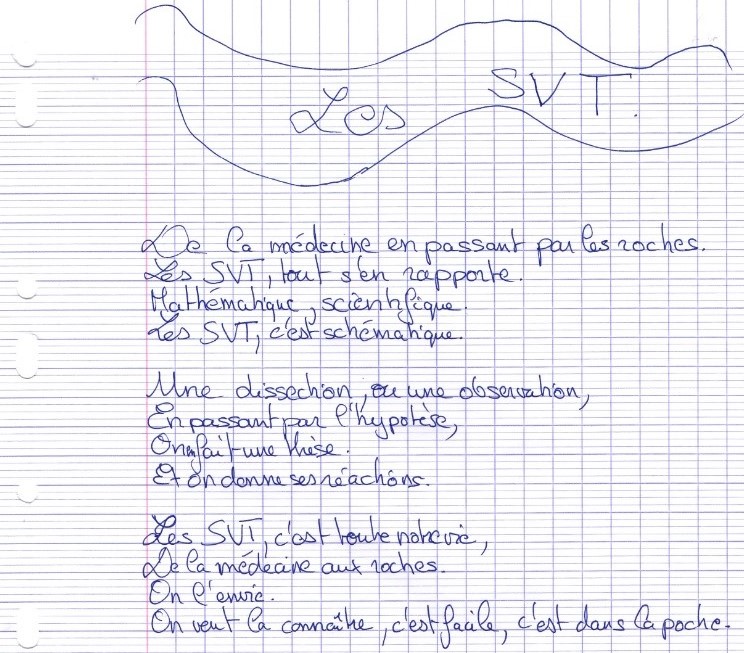 Les SVT.
De la médecine en passant par les roches.
Les SVT, tout s'en rapporte.
Mathématique, scientifique.
Les SVT, c'est schématique.
Une dissection, ou une observation,
En passant par l'hypotèse,
On en fait une thèse.
Et on donne ses réactions.
Les SVT, c'est toute notre vie,
De la médecine aux roches.
On l'envie.
On veut la connaître, c'est facile, c'est dans la poche.